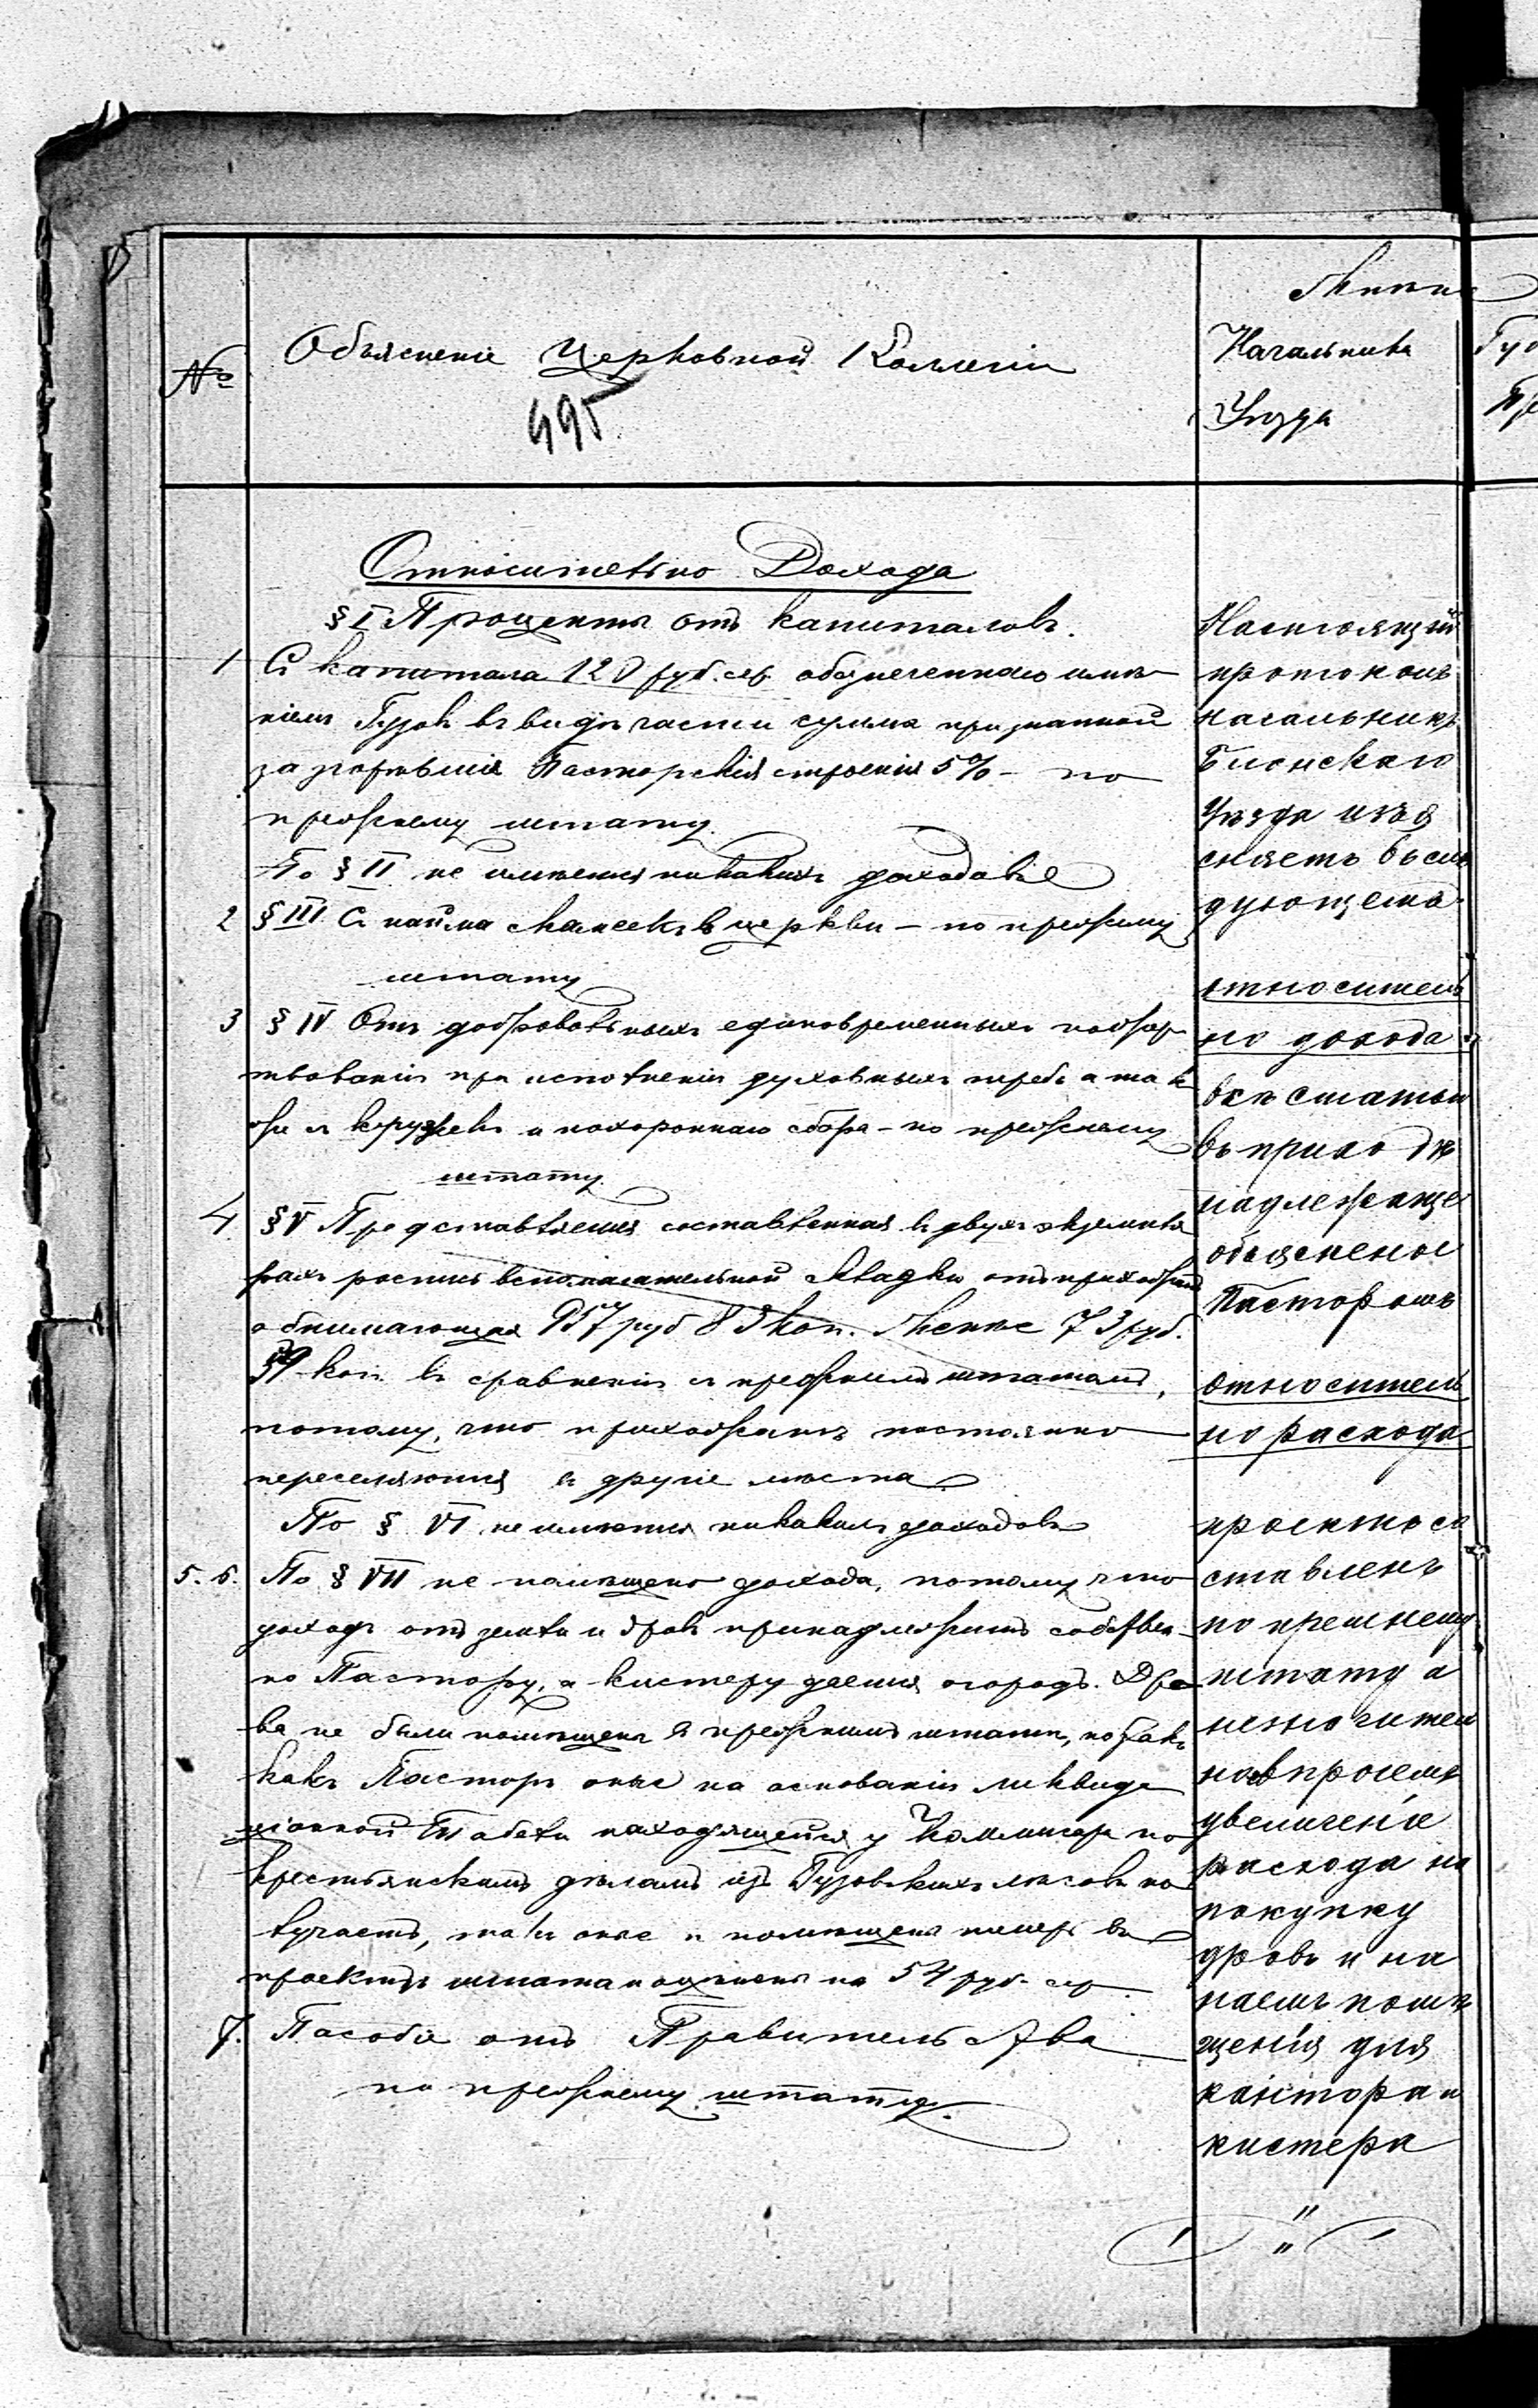 №
Объясненіе Церковной Коллегіи
495
Мнѣніе
Начальника
Уѣзда
Относительно Дохода
§ I Проценты отъ капиталовъ.
1 Съ капитала 120 руб. сер. обезпеченнаго имѣ
ніемъ Гузовъ въ видѣ части суммы признанной
за погорѣвшія Пасторскія строенія 5% – по
прежнему штату.
По § II не имѣется никакихъ доходовъ
2 § III Съ найма скамеекъ въ церкви – по прежнему
штату
3 § IV Отъ добровольныхъ единовременныхъ пожер
твованій при исполненіи духовныхъ требъ а так
же съ кружекъ и похороннаго сбора – по прежнему
штату.
4 § V Представляется составленная въ двухъ экземпля
рахъ роспись вспомогательной складки отъ прихожанъ
обнимающая 957 руб 83 коп. менѣе 73 руб.
39 коп. въ сравненіи съ прежнимъ штатомъ,
потому, что прихожане постоянно
переселяются въ другіе мѣста
По § VI не имѣются никакихъ доходовъ
5. 6. По § VII не помѣщено дохода, потому что
доходъ отъ земли и дровъ принадлежитъ собствен
но Пастору, а кистеру дается огородъ. Дро
ва не были помѣщены въ прежнимъ штатѣ, но такъ
какъ Пасторъ оные на основаніи ликвида
ціонной Табели находящейся у Коммисара по
крестьянскимъ дѣламъ изъ Гузовскихъ лѣсовъ по
лучаетъ, такъ оные и помѣщены теперь въ
проектѣ штата и оцѣнены на 54 руб. сер.
7. Пособіе отъ Правительства
по прежнему штату.
Настоящій
протоколъ
начальникъ
Блонскаго
Уѣзда изъя
сняетъ въ слѣ
дующемъ
относитель
но дохода
всѣ статьи
въ приходѣ
надлежаще
объяснены
Пасторомъ
относитель
но расхода
проектъ со
ставленъ
по прежнему
штату а
незначитель
но въ проэктѣ
увеличеніе
расхода на
покупку
дровъ и на
наемъ помѣ
щенія для
кантора и
кистера